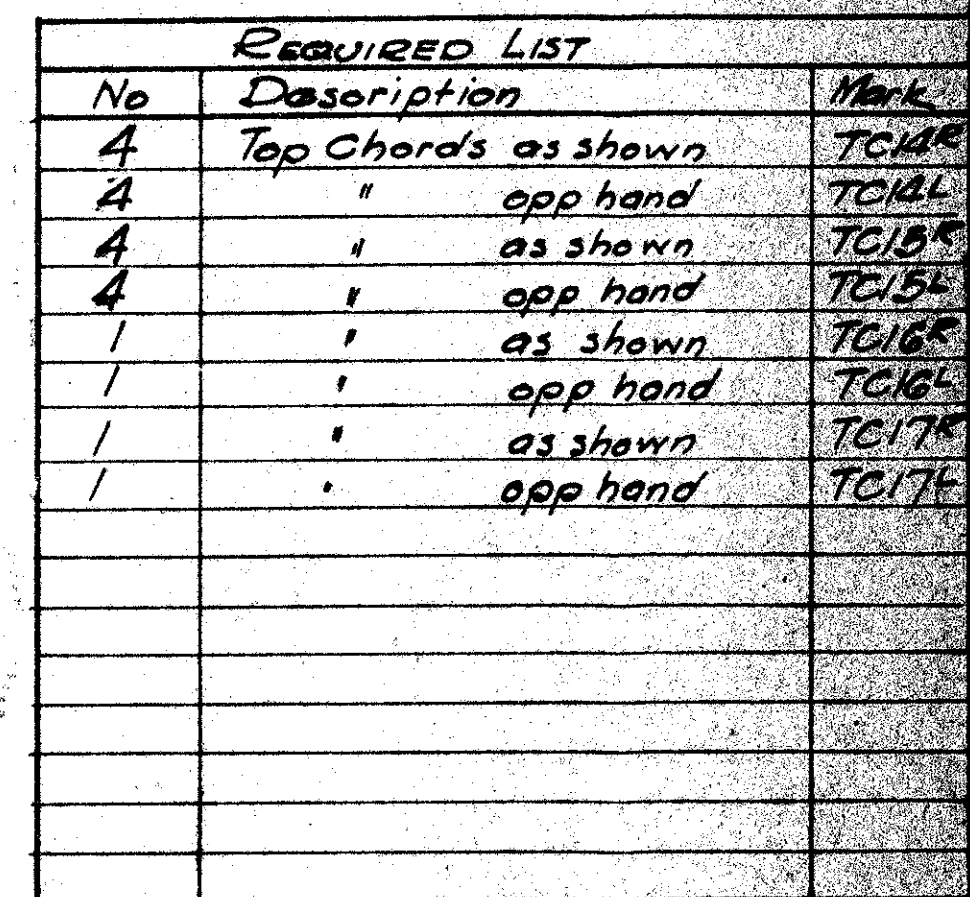 REQUIRED LIST
No Description Mark
4 Top Chords as shown TC14R
4 " opp hand TC14L
4 " as shown TC15R
4 " opp hand TC15L
1 " as shown TC16R
1 " opp hand TC16L
1 " as shown TC17R
1 " opp hand TC17L